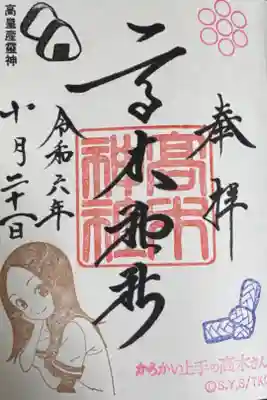 奉拝
高木神社
高木神社
令和六年
十月二十一日
高皇産靈神
からかい上手の高木さん
©S.Y,S/TK